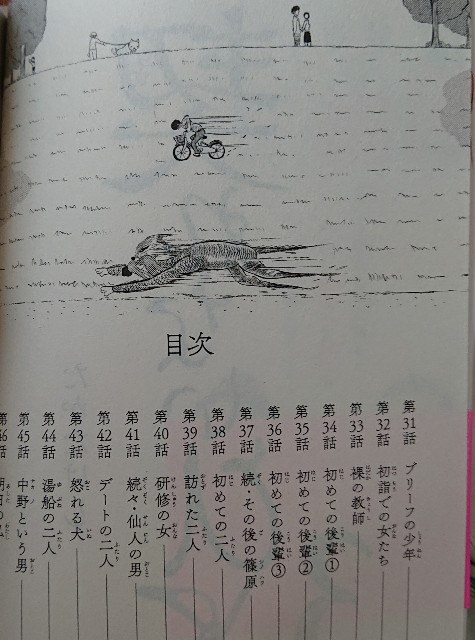 目次
第31話 ブリーフの少年
第32話 初詣での女たち
第33話 裸の教師
第34話 初めての後輩①
第35話 初めての後輩②
第36話 初めての後輩③
第37話 続・その後の篠原
第38話 初めての二人
第39話 訪れた二人
第40話 研修の女
第41話 続々・仙人の男
第42話 デートの二人
第43話 怒れる犬
第44話 湯船の二人
第45話 中野という男
第46話